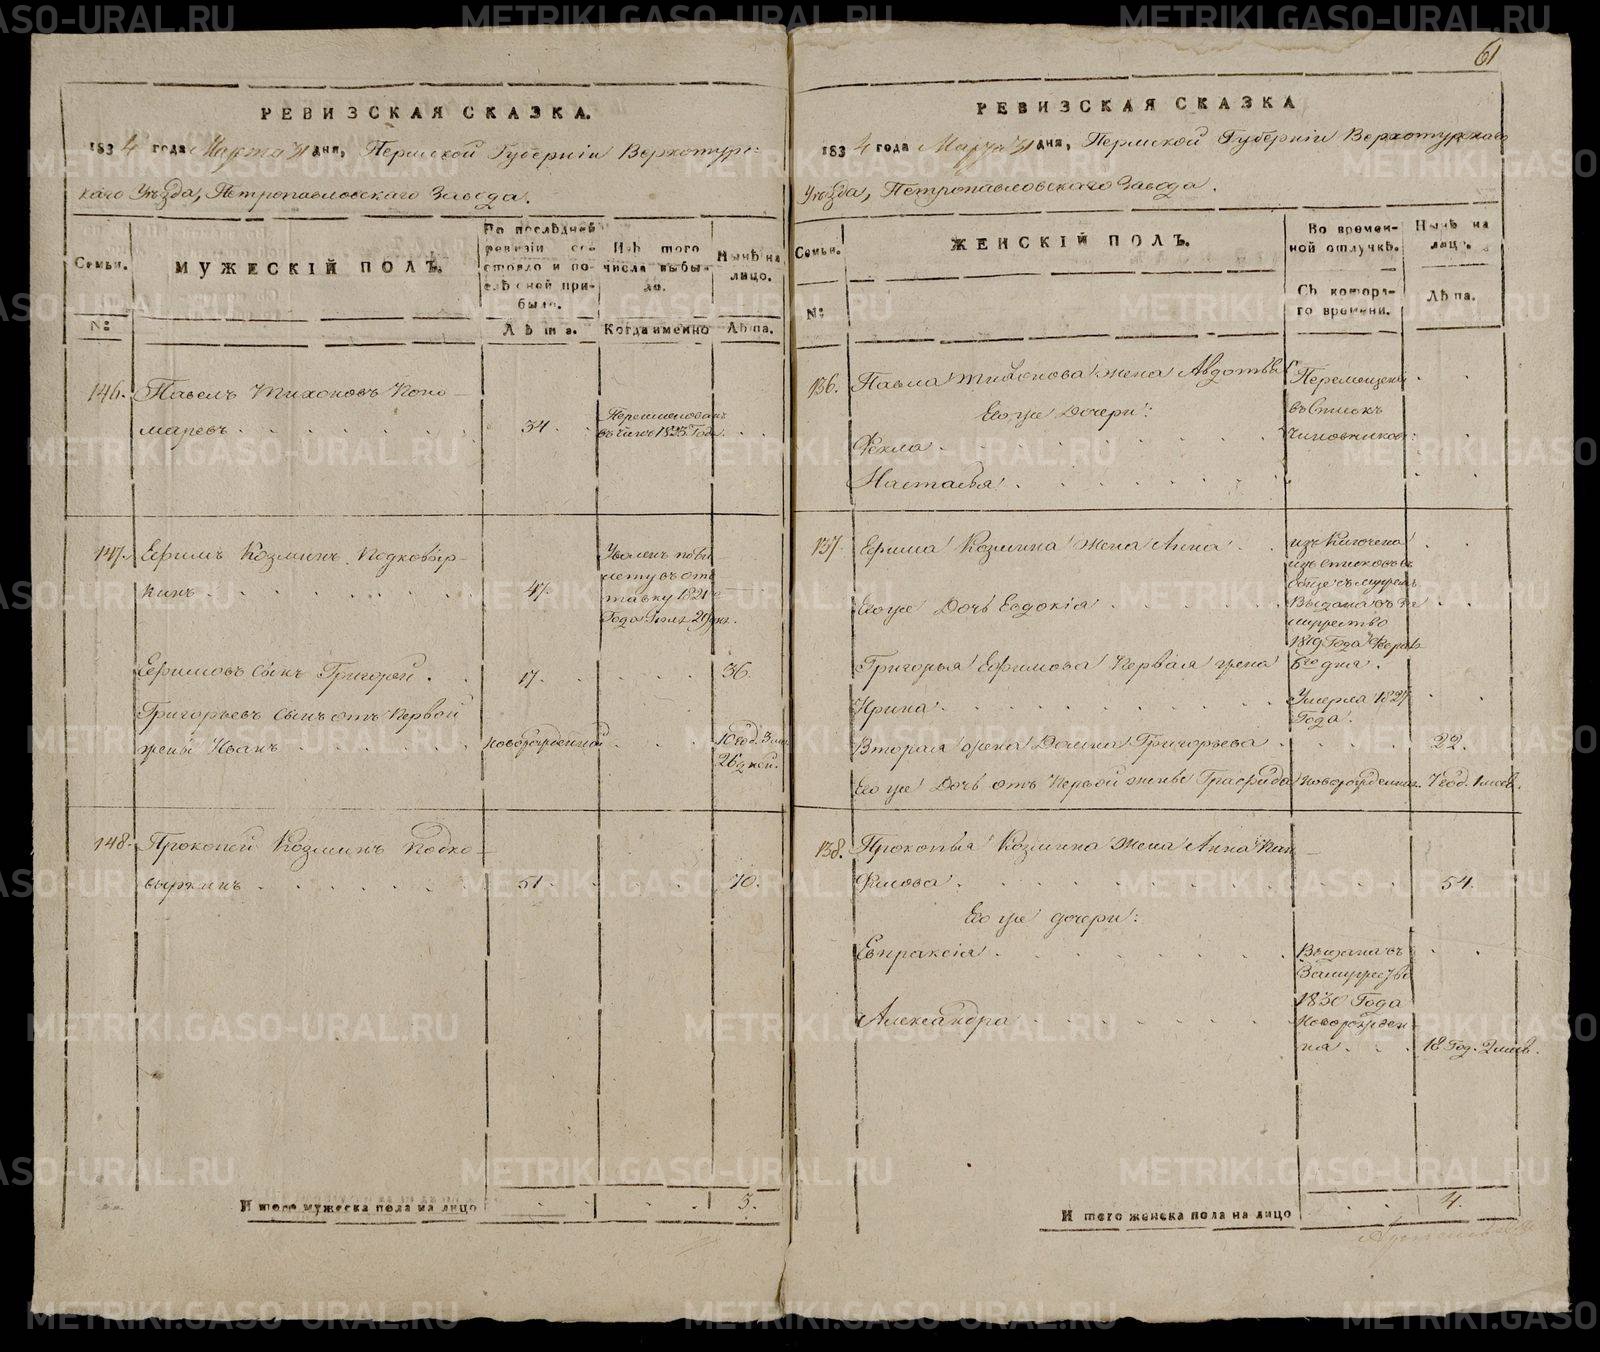 61
РЕВИЗСКАЯ СКАЗКА.
1834 года Марта 31 дня, Пермской Губерніи Верхотурс=
каго Уѣзда, Петропавловскаго Завода.
Семьи.
№:
МУЖЕСКІЙ ПОЛЪ.
По послѣдней ревизіи состояло и послѣ оной прибыло.
Лѣта.
Изъ того числа выбыло.
Когда именно
Нынѣ на лицо.
Лѣта.
146. Павелъ Тихоновъ Поно-
маревъ 34. Переименованъ въ чинъ 1825 Года.
147. Ефимъ Козминъ Подковыр-
кинъ 47. Уволенъ по билету въ отставку 1821 Года
Ефимовъ сынъ Григорей 17. 36.
Григорьевъ сынъ отъ первой
жены Иванъ новорожденный 10 год. 3 м. 26 дней.
148. Прокопей Козминъ Подко-
выркинъ 51. 70.
И того мужеска пола на лицо 3.
РЕВИЗСКАЯ СКАЗКА
1834 года Марта 31 дня, Пермской Губерніи Верхотурскаго
Уѣзда, Петропавловскаго Завода.
Семьи.
№:
ЖЕНСКІЙ ПОЛЪ.
Во временной отлучкѣ.
Съ котораго времени.
Нынѣ на лицо.
Лѣта.
136. Павла Тихонова жена Авдотья Перемещены
Его же дочери: въ Списокъ
Фекла Чиновниковъ
Настасья
137. Ефима Козмина жена Анна изключена изъ списковъ въ обще съ мужемъ
Его же Дочь Евдокія Выдана въ замужество 1819 Года Февр. 6го дня.
Григорья Ефимова Первая жена
Ирина Умерла 1827 Года.
Вторая жена Домна Григорьева 22.
Его же Дочь отъ первой жены новорожденная 7 год. 1 месяц.
138. Прокопья Козмина жена Анна Пан-
филова 54.
Его же дочери:
Евпраксія Выдана въ Замужество 1830 Года
Александра Новорожденная 18 Год. 2 мес.
И того женска пола на лицо 4.
METRIKI.GASO-URAL.RU